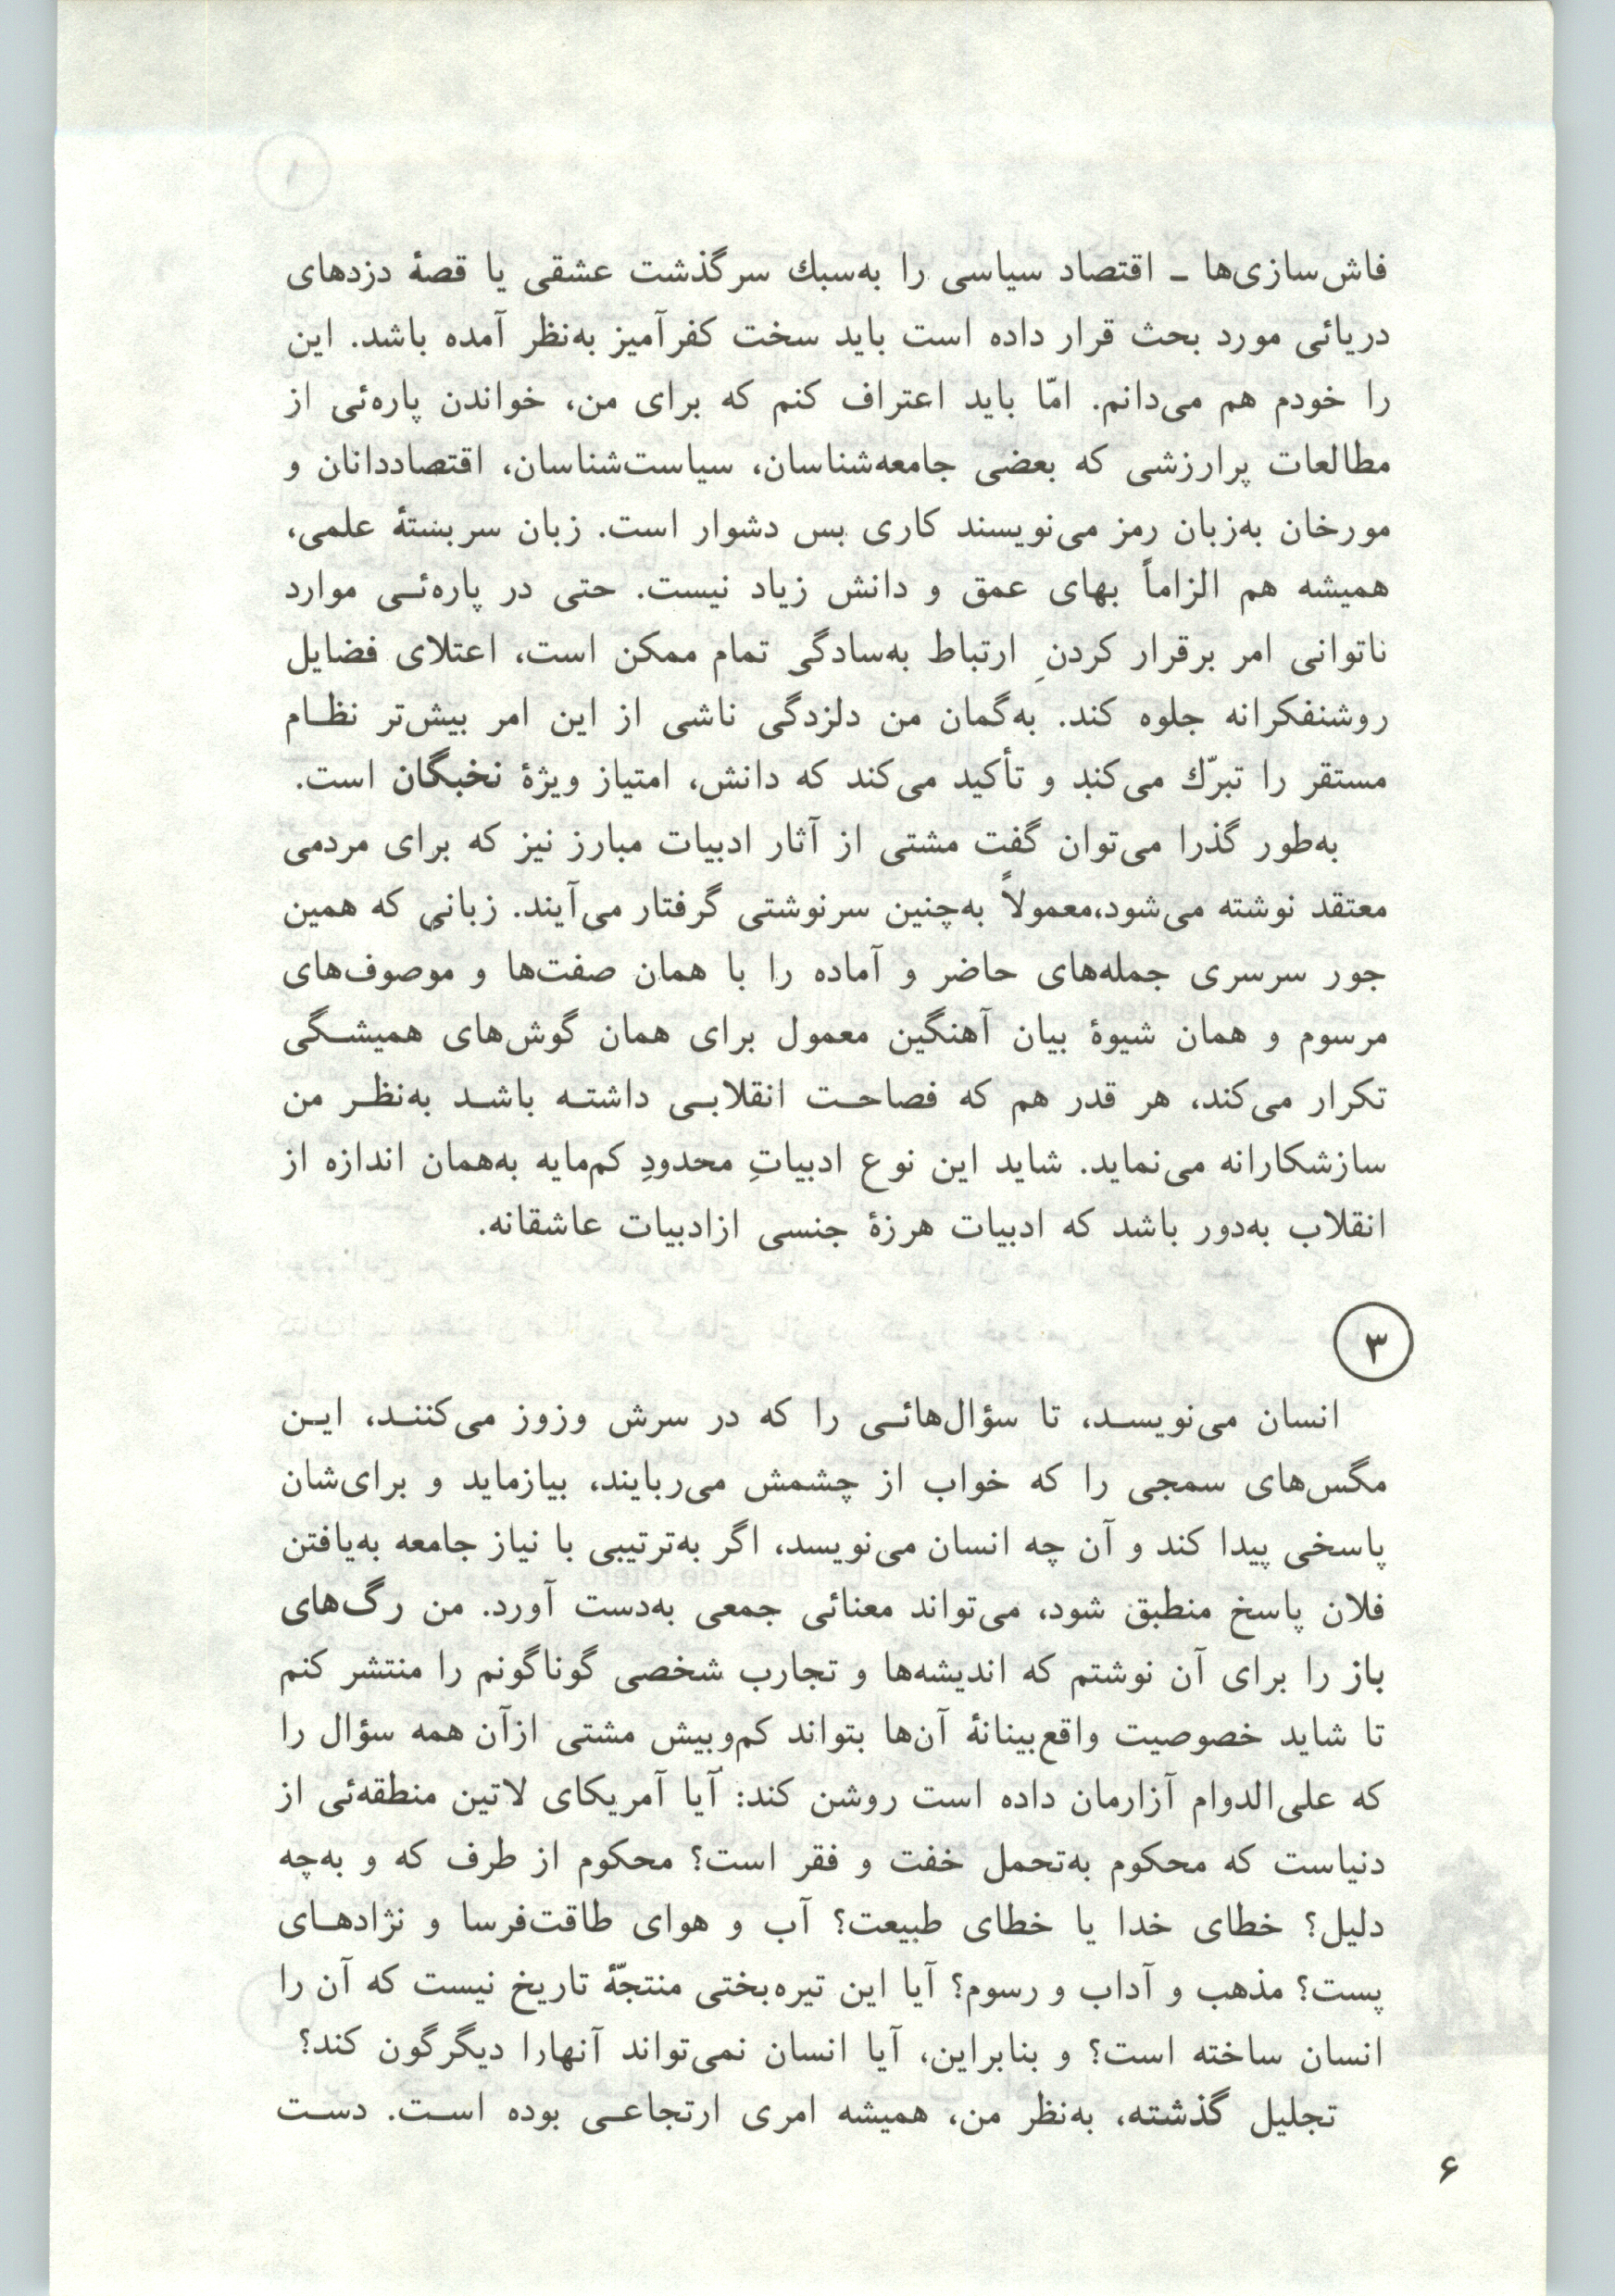 فاش‌سازی‌ها ـ اقتصاد سیاسی را به‌سبك سرگذشت عشقی یا قصهٔ دزدهای
دریائی مورد بحث قرار داده است باید سخت کفرآمیز به‌نظر آمده باشد. این
را خودم هم می‌دانم. امّا باید اعتراف کنم که برای من، خواندن پاره‌ئی از
مطالعات پرارزشی که بعضی جامعه‌شناسان، سیاست‌شناسان، اقتصاددانان و
مورخان به‌زبان رمز می‌نویسند کاری بس دشوار است. زبان سربستهٔ علمی،
همیشه هم الزاماً بهای عمق و دانش زیاد نیست. حتی در پاره‌ئـی موارد
ناتوانی امر برقرار کردنِ ارتباط به‌سادگی تمام ممکن است، اعتلای فضایل
روشنفکرانه جلوه کند. به‌گمان من دلزدگی ناشی از این امر بیش‌تر نظـام
مستقر را تبرّك می‌کند و تأکید می‌کند که دانش، امتیاز ویژهٔ نخبگان است.
به‌طور گذرا می‌توان گفت مشتی از آثار ادبیات مبارز نیز که برای مردمی
معتقد نوشته می‌شود،معمولاً به‌چنین سرنوشتی گرفتار می‌آیند. زبانی که همین
جور سرسری جمله‌های حاضر و آماده را با همان صفت‌ها و موصوف‌های
مرسوم و همان شیوهٔ بیان آهنگین معمول برای همان گوش‌های همیشـگی
تکرار می‌کند، هر قدر هم که فصاحـت انقلابـی داشتـه باشـد به‌نظـر من
سازشکارانه می‌نماید. شاید این نوع ادبیاتِ محدودِ کم‌مایه به‌همان اندازه از
انقلاب به‌دور باشد که ادبیات هرزهٔ جنسی ازادبیات عاشقانه.
۳
انسان می‌نویسـد، تا سؤال‌هائـی را که در سرش وزوز می‌کننـد، ایـن
مگس‌های سمجی را که خواب از چشمش می‌ربایند، بیازماید و برای‌شان
پاسخی پیدا کند و آن چه انسان می‌نویسد، اگر به‌ترتیبی با نیاز جامعه به‌یافتن
فلان پاسخ منطبق شود، می‌تواند معنائی جمعی به‌دست آورد. من رگ‌های
باز را برای آن نوشتم که اندیشه‌ها و تجارب شخصی گوناگونم را منتشر کنم
تا شاید خصوصیت واقع‌بینانهٔ آن‌ها بتواند کم‌وبیش مشتی ازآن همه سؤال را
که علی‌الدوام آزارمان داده است روشن کند: آیا آمریکای لاتین منطقه‌ئی از
دنیاست که محکوم به‌تحمل خفت و فقر است؟ محکوم از طرف که و به‌چه
دلیل؟ خطای خدا یا خطای طبیعت؟ آب و هوای طاقت‌فرسا و نژادهـای
پست؟ مذهب و آداب و رسوم؟ آیا این تیره‌بختی منتجّهٔ تاریخ نیست که آن را
انسان ساخته است؟ و بنابراین، آیا انسان نمی‌تواند آنهارا دیگرگون کند؟
تجلیل گذشته، به‌نظر من، همیشه امری ارتجاعـی بوده اسـت. دسـت
۶